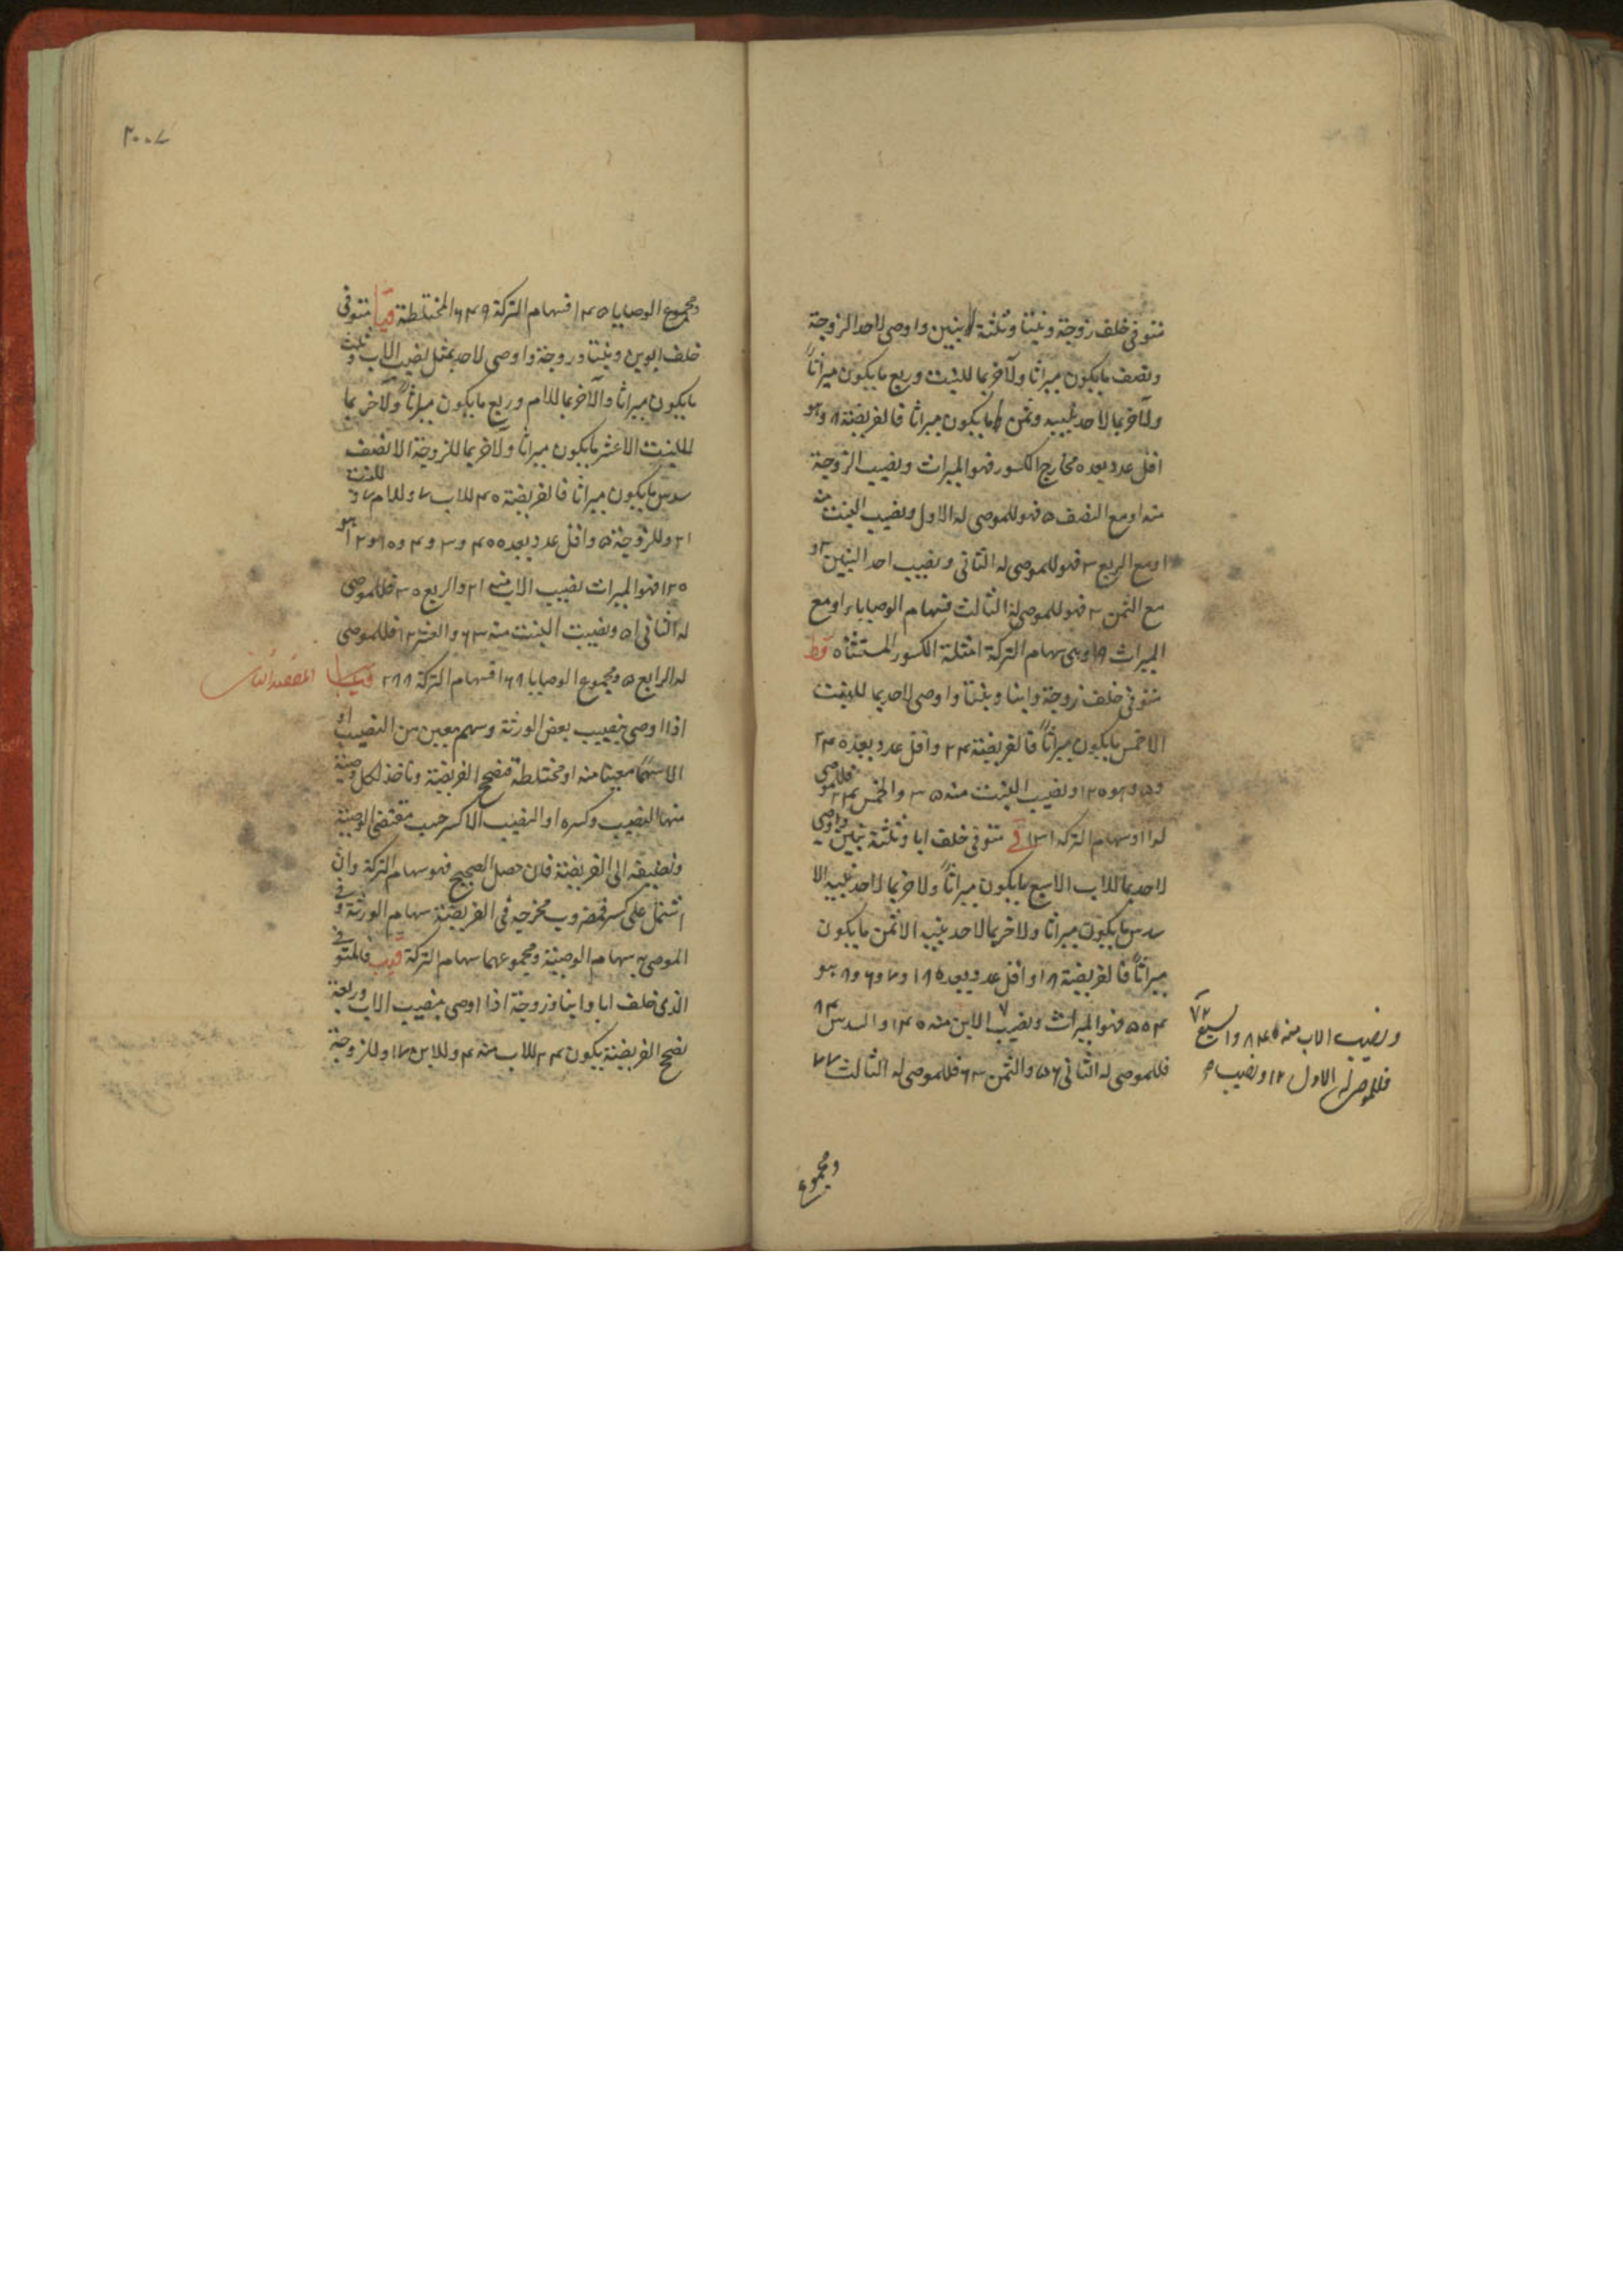 متوفى خلف زوجة وبنتا وثلثة بنين واوصى لاحد الزوجة
ونصف مايكون ميراثا ولآخر بما للبنت وربع مايكون ميراثاً
ولآخر بما لاحد بنيه وثمن مايكون ميراثا فالفريضة ٨ وهو
اقل عدد يعده مخارج الكسور فهو الميراث ونصيب الزوجة
منه او مع النصف ٥ فهو للموصى له الاول ونصيب البنت منه
ا ومع الربع ٣ فهو للموصى له الثانى ونصيب احد البنين ٢ و
مع الثمن ٣ فهو للموصى له الثالث فسهام الوصايا ١١ ومع
الميراث ١٩ وهى سهام التركة امثلة الكسور المستثناه قط
متوفى خلف زوجة وابنا وبنتا واوصى لاحد بما للبنت
الا خمس مايكون ميراثاً فالفريضة ٢٤ واقل عدد يعده ٢٤
و٥ هو ١٢٠ ونصيب البنت منه ٣٥ والخمس ٢٤ فللموصى
له ١١ وسهام التركة ١٣١ قى متوفى خلف ابا وثلثة بنين واوصى
لاحد بما للاب الا سبع مايكون ميراثاً ولآخر بما لاحد بنيه الا
سدس مايكون ميراثا ولآخر بما لاحد بنيه الا ثمن مايكون
ميراثاً فالفريضة ١٨ واقل عدد يعده ١٨ و٧ و٦ و٨ هو
٥٠٤ فهو الميراث ونصيب الابن منه ١٤٠ والسدس ٨٤
فللموصى له الثانى ٥٦ والثمن ٦٣ فللموصى له الثالث ٧٧
ونصيب الاب منه ٨٤ والسبع ٧٢
فللموصى له الاول ١٢ ونصيب
ومجموع
٢٠٠٧
ومجموع الوصايا ١٤٥ فسهام التركة ٦٤٩ المختلطة قيا متوفى
خلف ابوين وبنتا وزوجة واوصى لاحد بمثل نصيب الاب وثلث
مايكون ميراثا ولآخر بما للام وربع مايكون ميراثاً ولآخر بما
للبنت الا عشر مايكون ميراثا ولآخر بما للزوجة الا نصف
سدس مايكون ميراثا فالفريضة ٤٠ للاب ٧ وللام ٧ وللبنت
٢١ وللزوجة ٥ واقل عدد يعده ٤٠ و٣ و٤ و١٠ و١٢ هو
١٢٠ فهو الميراث نصيب الام منه ٢١ والربع ٣٠ فللموصى
له الثانى ٥١ ونصيب البنت منه ٦٣ والعشر ١٢ فللموصى
له الرابع ٥ ومجموع الوصايا ١٦٨ فسهام التركة ٢٨٨ قيب المقصد الثانى
اذا اوصى بنصيب بعض الورثة وسهم معين من النصيب او
الا سهما معينا منه او مختلطة فصحح الفريضة وتاخذ لكل وصية
منها النصيب وكسره او النصيب الا كسر حسب مقتضى الوصية
وتضيفه الى الفريضة فان حصل الصحيح فهو سهام التركة وان
اشتمل على كسر فمضروب مخرجه فى الفريضة سهام الورثة وفى
الموصى به سهام الوصية ومجموعهما سهام التركة قيب فالمتوفى
الذى خلف ابا وابنا وزوجة اذا اوصى بنصيب الاب وربعه
نصحح الفريضة يكون ٢٤ للاب منه ٤ وللابن ١٧ وللزوجة